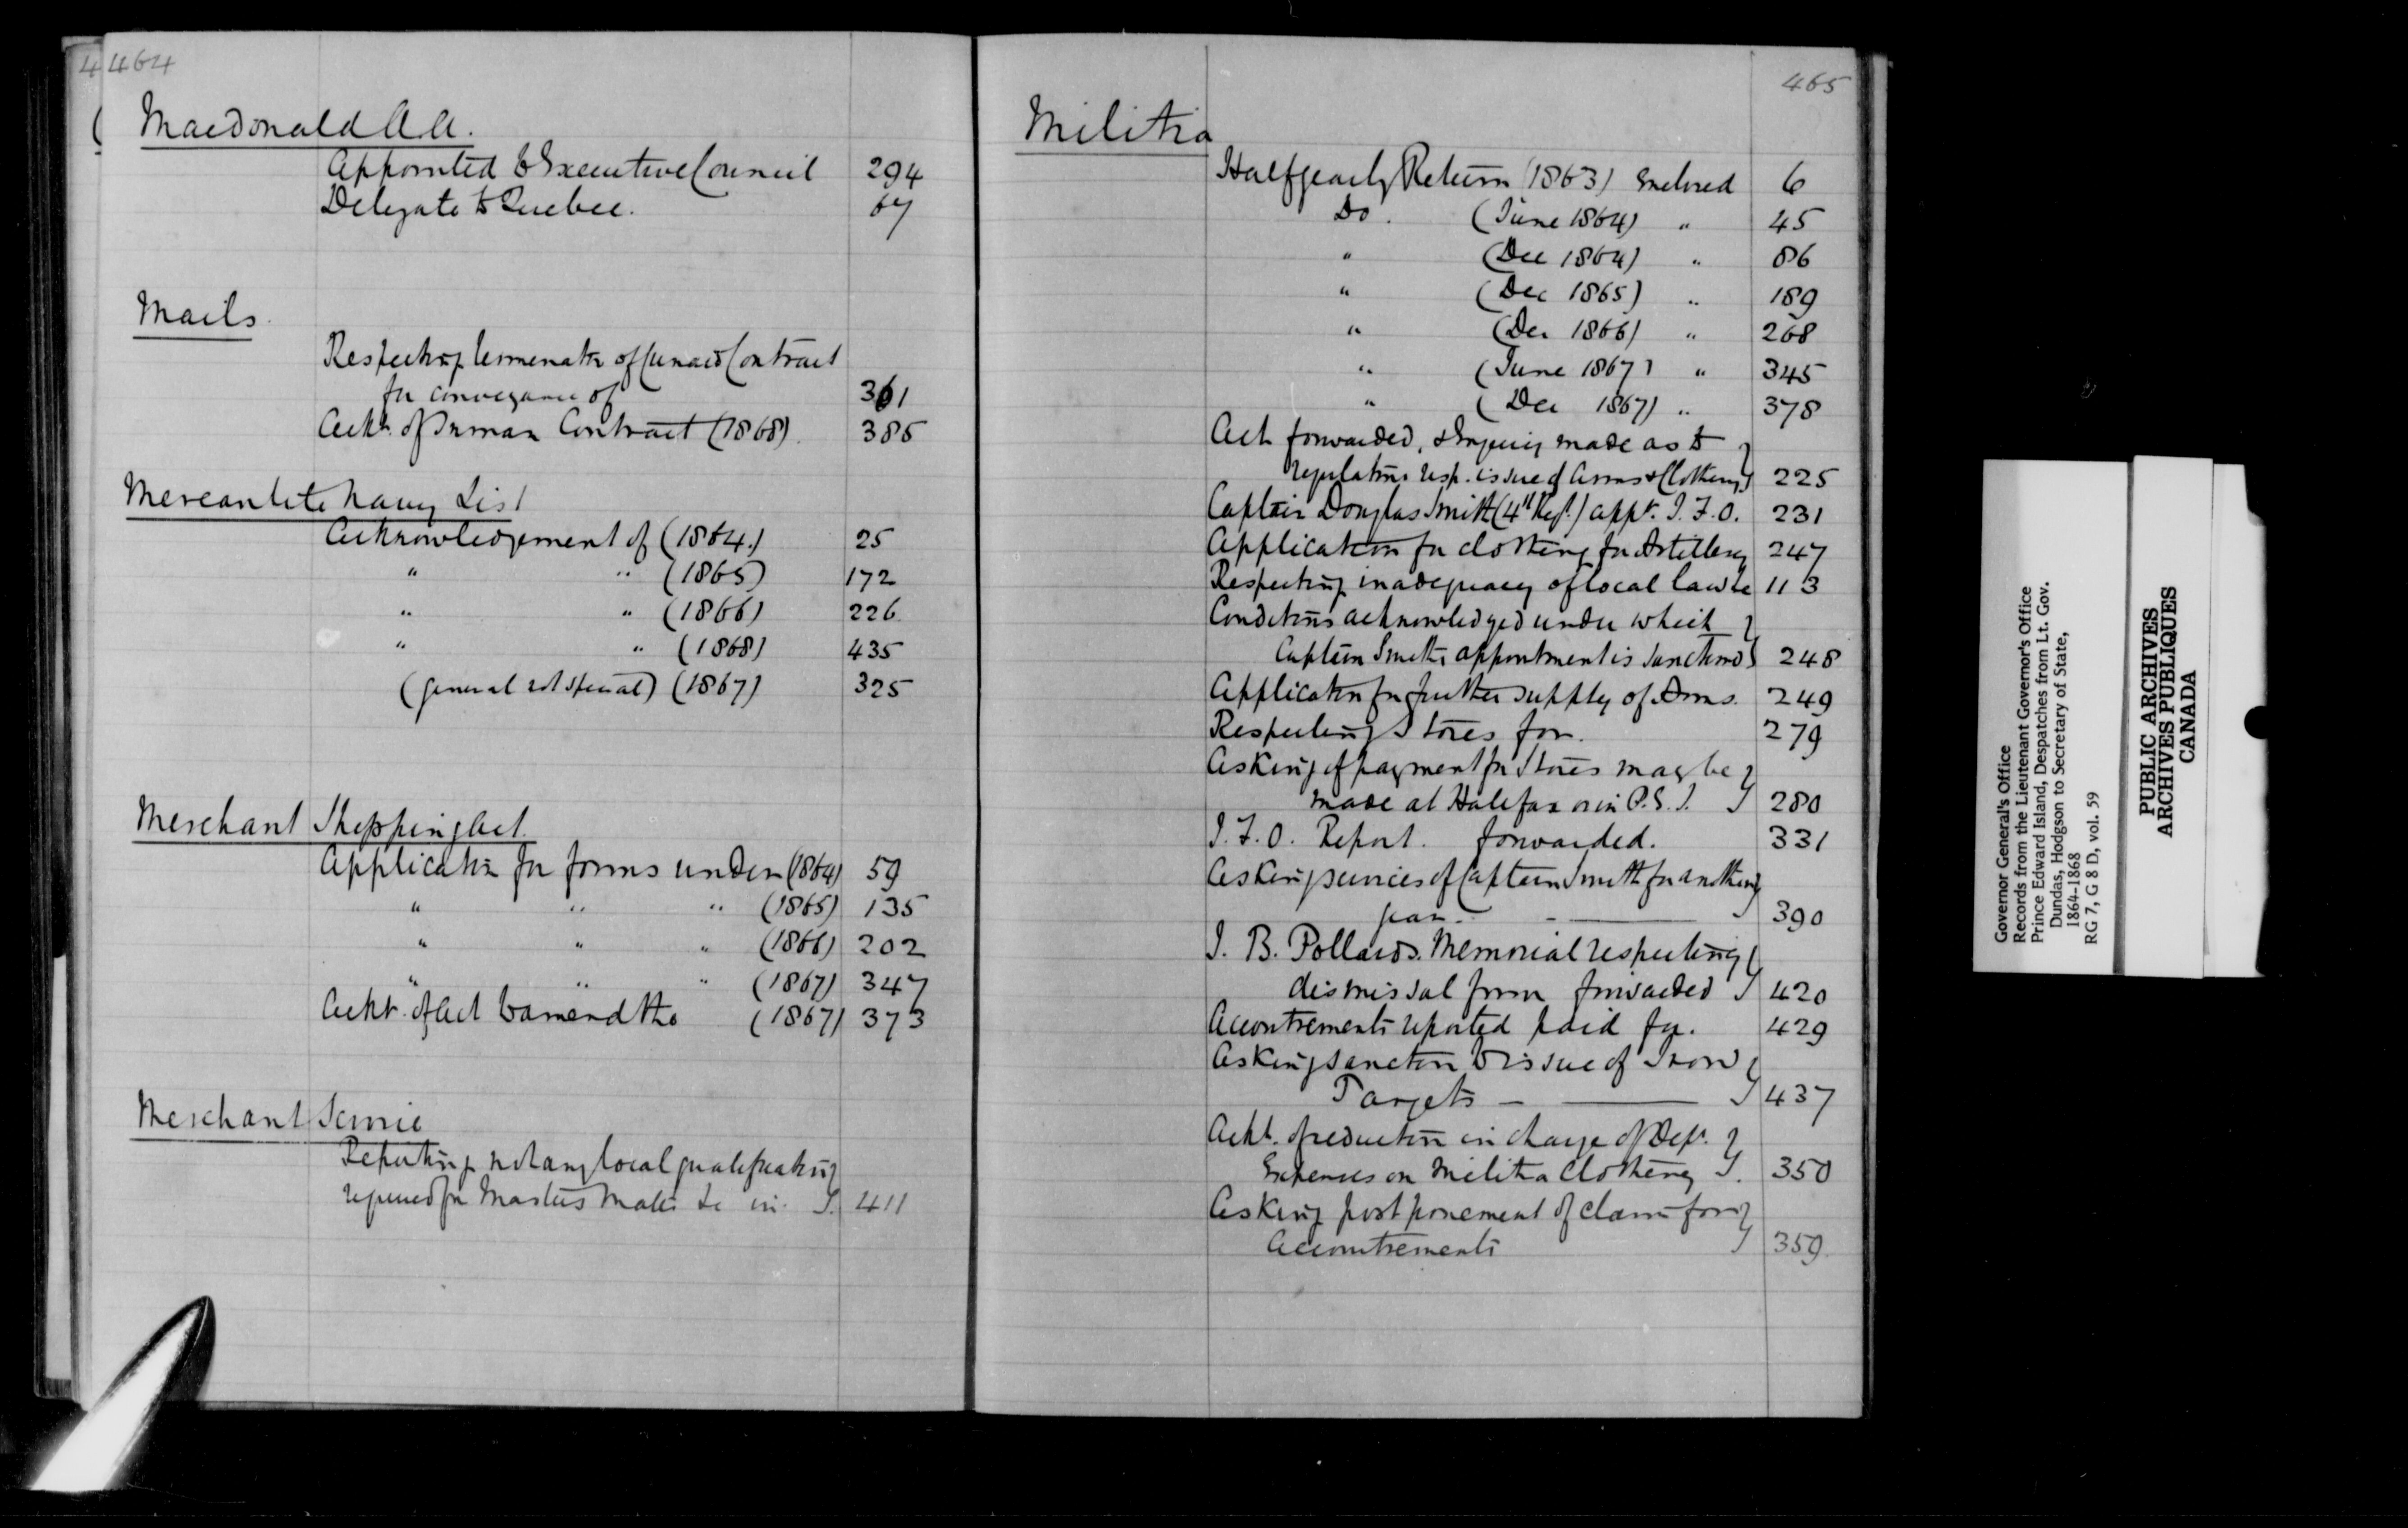 464
Macdonald A.A.
Appointed to Executive Council 294
Delegate to Quebec. 67
Mails
Respecting termination of Cunard Contract
for conveyance of 361
Ackt. of Inman Contract (1868). 385
Mercantile Navy List
Acknowledgement of (1864.) 25
" " (1865) 172
" " (1866) 226
" " (1868) 435
(general not special) (1867) 325
Merchant Shipping Act.
Application for forms under (1864) 59
" " " (1865) 135
" " " (1866) 202
" " " (1867) 347
Ackt. of Act to amend the (1867) 373
Merchant Service
Reporting not any local qualification
required for Masters Mates &c in. 411
465
Militia
Half yearly Return (1863) enclosed 6
Do. (June 1864) " 45
" (Dec 1864) " 86
" (Dec 1865) " 189
" (Dec 1866) " 268
" (June 1867) " 345
" (Dec 1867) " 378
Act forwarded, & Inquiry made as to
regulations resp. issue of Arms & Clothing 225
Captain Douglas Smith (4th Regt.) appt. I.F.O. 231
Application for clothing for Artillery 247
Respecting inadequacy of local law &c 113
Conditions acknowledged under which
Captain Smith's appointment is sanctioned 248
Application for further supply of Arms. 249
Respecting Stores for. 279
Asking if payment for Stores may be
made at Halifax or in P.E.I. 280
I.F.O. Report. forwarded. 331
Asking services of Captain Smith for another
year. - 390
I. B. Pollards. Memorial respecting
dismissal from forwarded 420
Accoutrements reported paid for. 429
Asking sanction to issue of Iron
Targets - 437
Ackt. of reduction in charge of Dept.
Expenses on Militia Clothing. 350
Asking postponement of claim for
Accoutrements 359.
Governor General's Office
Records from the Lieutenant Governor's Office
Prince Edward Island, Despatches from Lt. Gov.
Dundas, Hodgson to Secretary of State,
1864-1868
RG 7, G 8 D, vol. 59
PUBLIC ARCHIVES
ARCHIVES PUBLIQUES
CANADA